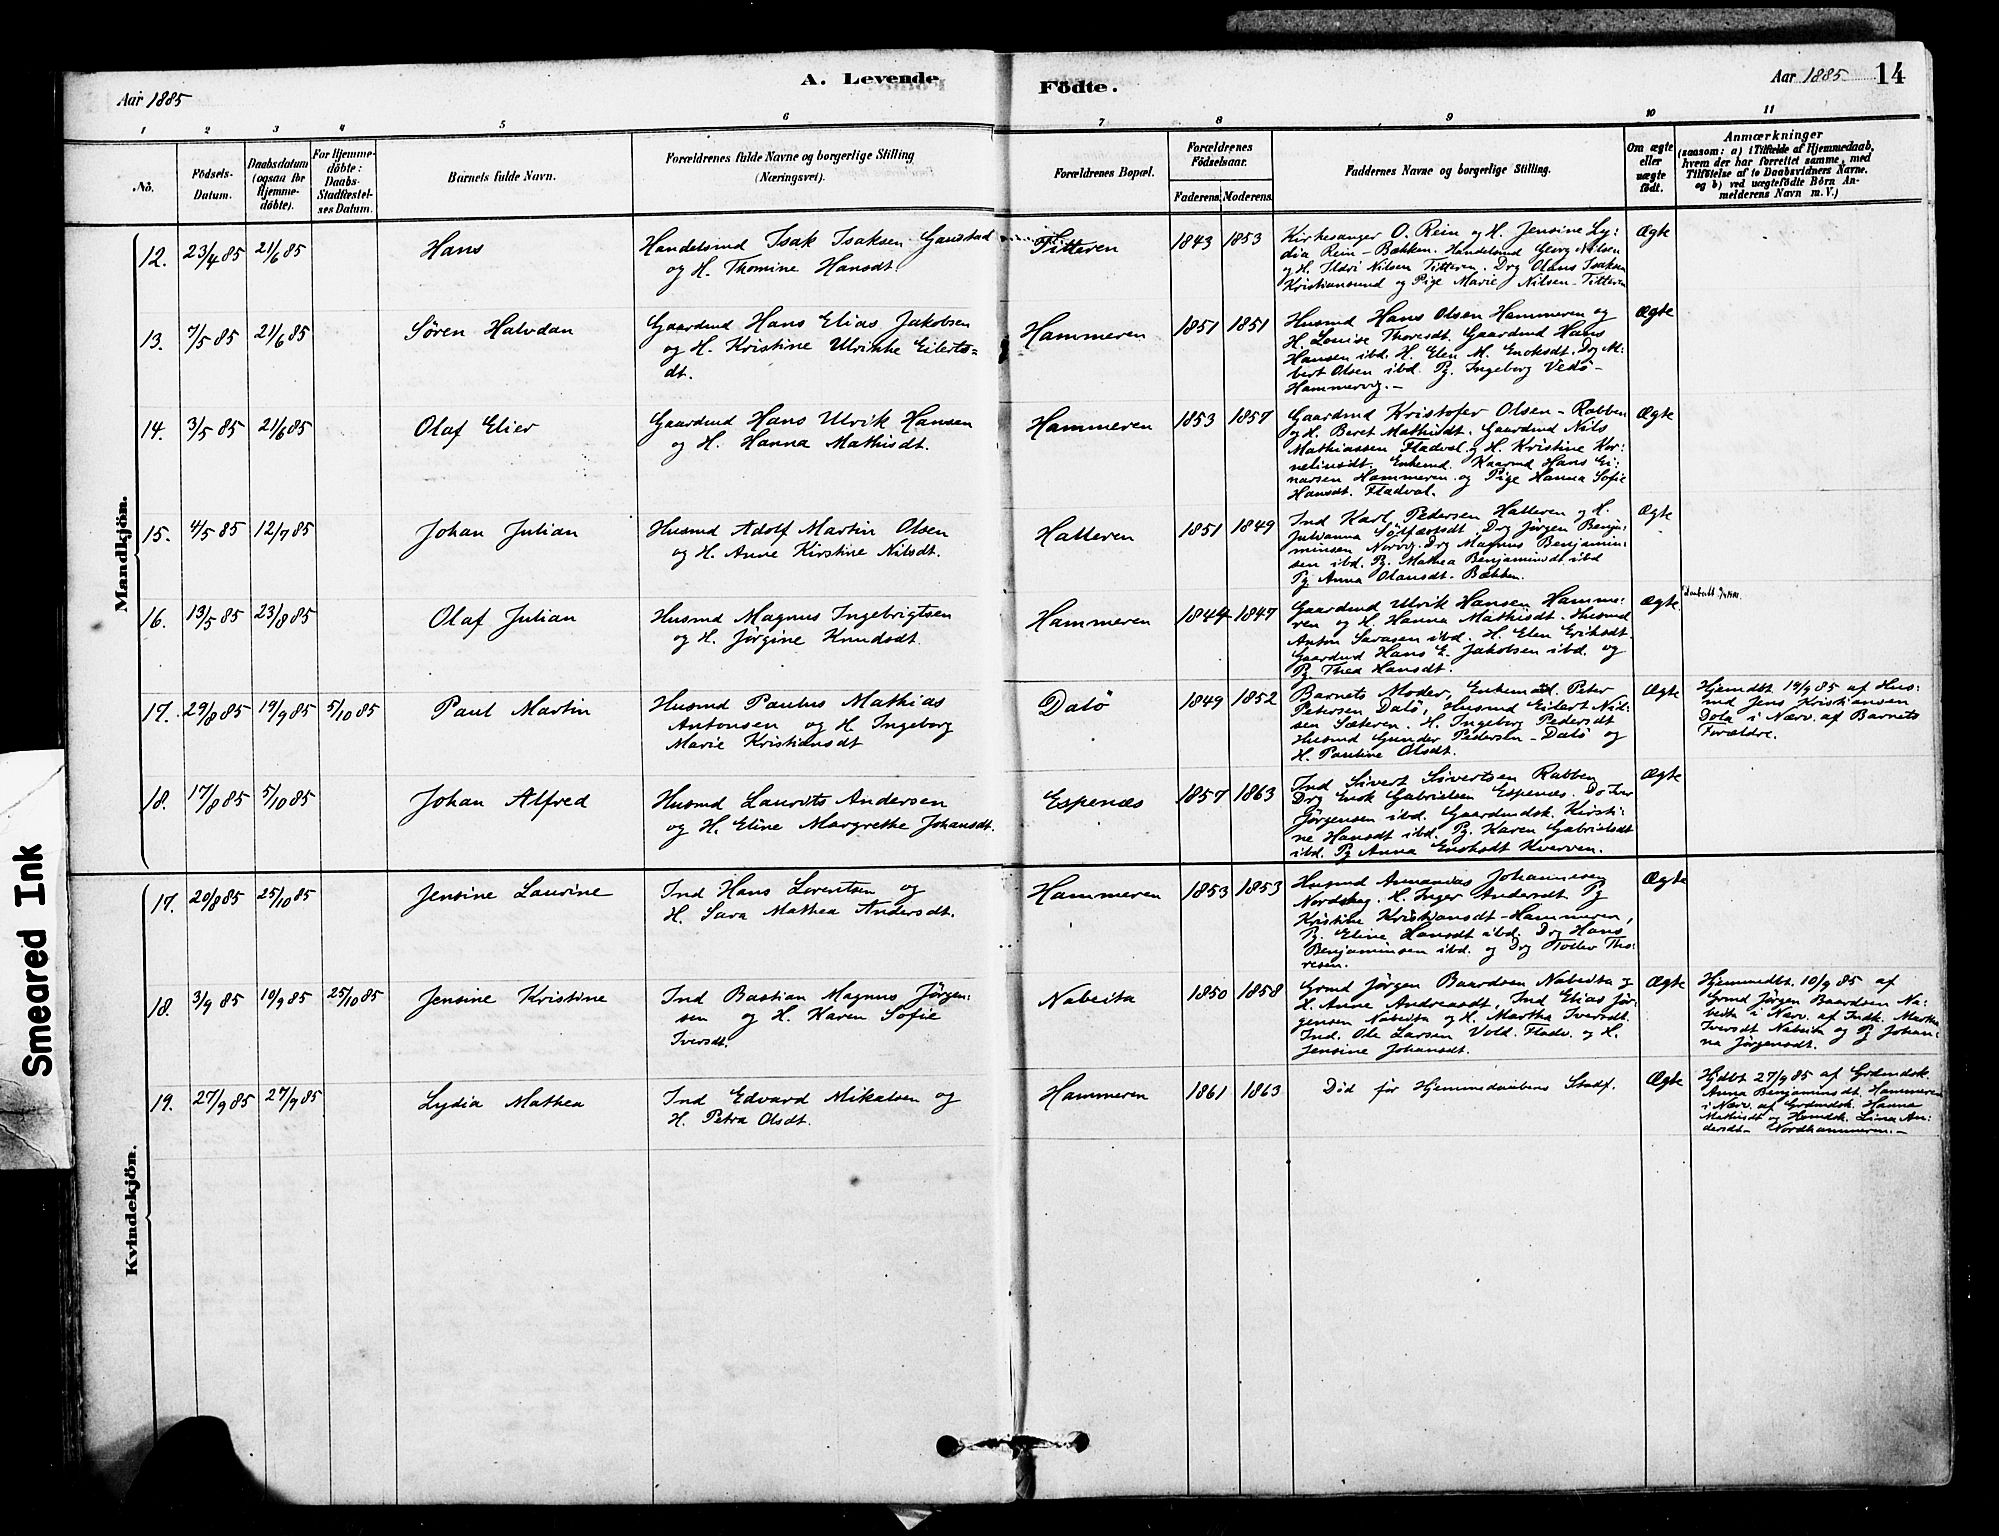 Aar 1885
A. Levende
Födte.
Aar 1885
14
1 2 3 4 5 6 7 8 9 10 11
No.
Födsels-
Datum.
Daabsdatum
(ogsaa for
Hjemme-
döbte).
For Hjemme-
döbte:
Daabs-
Stadfæstel-
ses Datum.
Barnets fulde Navn.
Forældrenes fulde Navne og borgerlige Stilling
(Næringsvei).
Forældrenes Bopæl.
Forældrenes
Födselsaar.
Faderens. Moderens.
Faddernes Navne og borgerlige Stilling.
Om ægte
eller
uægte
födt.
Anmærkninger
(saasom: a) i Tilfælde af Hjemmedaab,
hvem der har forrettet samme, med
Tilföielse af to Daabsvidners Navne,
og b) ved uægtefödte Börn An-
melderens Navn m. V.)
Mandkjön.
12. 23/4 85 21/6 85 Hans
Handelsmd Isak Isaksen Gaustad
og H. Thomine Hansdt.
Titteren 1843 1853
Kirkesanger O. Rein og H. Jensine Ly:
dia Rein - Bækken. Handelsmd Georg Nilsen
og H. Ildri Nilsen Titteren. Drg Olaus Isaksen
Kristiansund og Pige Marie Nilsen - Titteren
Ægte
13. 7/5 85 21/6 85 Søren Halvdan
Gaardmd Hans Elias Jakobsen
og H. Kristine Ulrikke Eilerts-
dt.
Hammeren 1851 1851
Husmd Hans Olsen Hammeren og
H. Louise Thoresdt. Gaardmd Hans
Hansen ibd. H. Elen M. Enoksdt. Drg M:
bert Olsen ibd. Pg. Ingeborg Vedø -
Hammervg. -
Ægte
14. 3/5 85 21/6 85 Olaf Elier
Gaardmd Hans Ulrik Hansen
og H. Hanna Mathisdt.
Hammeren 1853 1857
Gaardmd Kristofer Olsen - Rabben
og H. Beret Mathisdt. Gaardmd Nils
Mathiassen Fladval og H. Kristine Kor:
neliusdt. Enkemd. Kaarmd Hans Ei:
narsen Hammeren og Pige Hanna Sofie
Hansdt. Fladval.
Ægte
15. 4/5 85 12/7 85 Johan Julian
Husmd Adolf Martin Olsen
og H. Anne Kirstine Nilsdt.
Hatteren 1851 1849
Ind Karl Pedersen Hatteren og H.
Julianna Sølfæstsdt. Drg Jørgen Benja-
minsen Norvg. Drg Magnus Benjamin:
sen ibd. Pg. Mathea Benjaminsdt ibd
Pg Anna Olausdt. Bækken.
Ægte
16. 13/5 85 23/8 85 Olaf Julian
Husmd Magnus Ingebrigtsen
og H. Jørgine Knudsdt.
Hammeren 1844 1847
Gaardmd Ulrik Hansen Hamme:
ren og H. Hanna Mathisdt. Husmd
Anton Larasen ibd. H. Elen Eriksdt.
Gaardmd Hans E. Jakobsen ibd. og
Pg Thea Hansdt.
Ægte
17. 29/8 85 19/9 85 5/10 85 Paul Martin
Husmd Paulus Mathias
Antonsen og H. Ingeborg
Marie Kristiansdt
Dalø 1849 1852
Barnets Moder, Enkemd. Peter
Petersen Dalø, Husmd Eilert Nil-
sen Sæteren. H. Ingeborg Pedersdt
Husmd Gunder Pedersen - Dalø og
H. Pauline Olsdt.
Ægte
Hjemdbt. 19/9 85 af Hus:
md Jens Kristiansen
Dolø i Nærv. af Barnets
Forældre.
18. 17/8 85 5/10 85 Johan Alfred
Husmd Laurits Andersen
og H. Eline Margrethe Johansdt.
Espenæs 1857 1863
Ind Sivert Sivertsen Rabben
Drg Enok Gabrielsen Espenæs. Do Iver
Jørgensen ibd. Gaardmdsk. Kirsti:
ne Hansdt ibd. Pg. Karen Gabrielsdt
ibd. Pg Anna Enoksdt Kverven.
Ægte
Kvindekjön.
17. 20/8 85 25/10 85 Jensine Laurine
Ind Hans Lorentsen og
H. Sara Mathea Andersdt.
Hammeren 1853 1853
Husmd Annanias Johannesen
Nordskag. H. Inger Andersdt Pg
Kristine Kristiansdt - Hammeren,
Pg. Eline Hansdt ibd. Drg Hans
Benjaminsen ibd. og Drg Toller Tho:
resen.
Ægte
18. 3/9 85 10/9 85 25/10 85 Jensine Kristine
Ind Bastian Magnus Jørgen-
sen og H. Karen Sofie
Iversdt.
Nabeita 1850 1858
Grmd Jørgen Baardsen Nabeita og
H. Anne Andreasdt, Ind Elias Jør:
gensen Nabeita og H. Martha Iversdt.
Ind. Ole Larsen Vold. Fladv. og H.
Jensine Johansdt.
Ægte
Hjemmedbt. 10/9 85 af
Grmd Jørgen Baardsen Na:
beita i Nærv. af Indk. Martha
Iversdt Nabeita og Pg Johan-
na Jørgensdt.
19. 27/9 85 27/9 85 Lydia Mathea
Ind Edvard Mikalsen og
H. Petra Olsdt.
Hammeren 1861 1863
Død før Hjemmedaabens Stadf.
Ægte
Hjdbt 27/9 85 af Grdmdsk.
Anna Benjaminsdt. Hammeren
i Nærv. af Grdmdsk. Hanna
Mathisdt og Husmdsk. Lina An:
dersdt - Nordhammeren. -
Smeared Ink